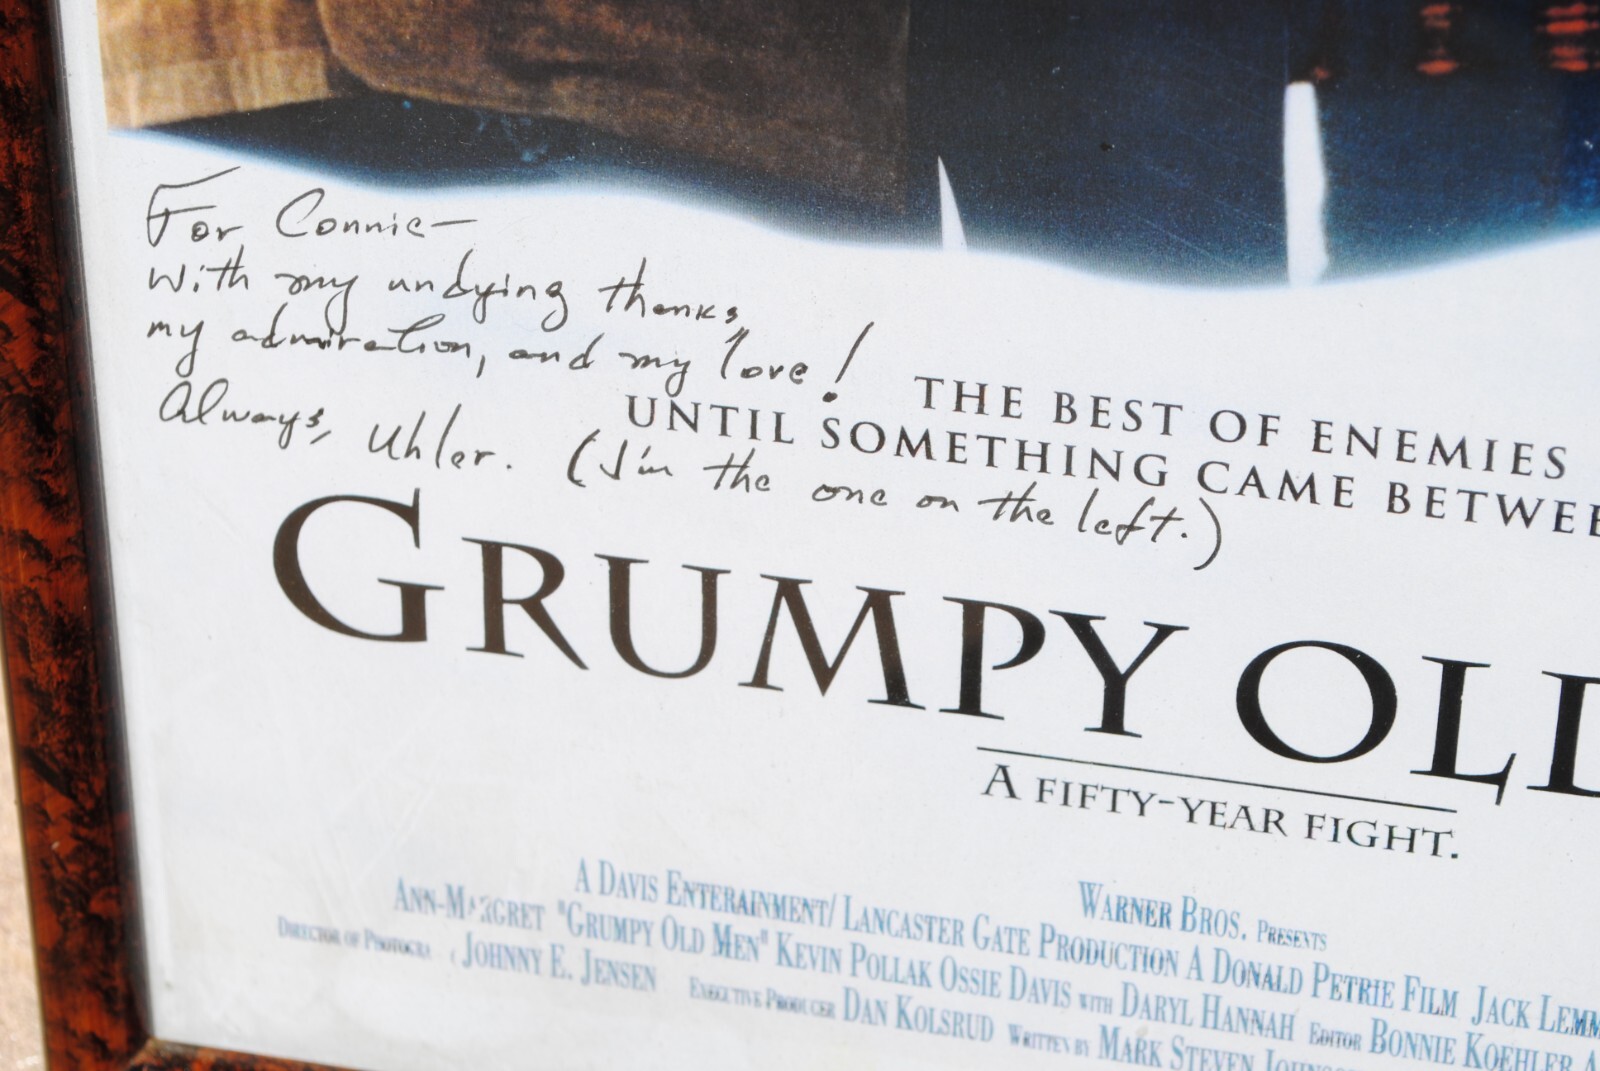 For Connie—
with my undying thanks,
my admiration, and my love!
Always, Uhler. (I'm the one on the left.)
THE BEST OF ENEMIES
UNTIL SOMETHING CAME BETWEE
GRUMPY OLD
A FIFTY-YEAR FIGHT.
WARNER BROS. PRESENTS
A DAVIS ENTERAINMENT/LANCASTER GATE PRODUCTION A DONALD PETRIE FILM JACK LEMM
ANN-MARGRET "GRUMPY OLD MEN" KEVIN POLLAK OSSIE DAVIS WITH DARYL HANNAH EDITOR BONNIE KOEHLER A
DIRECTOR OF PHOTOGRA JOHNNY E. JENSEN EXECUTIVE PRODUCER DAN KOLSRUD WRITTEN BY MARK STEVEN JOHNSO